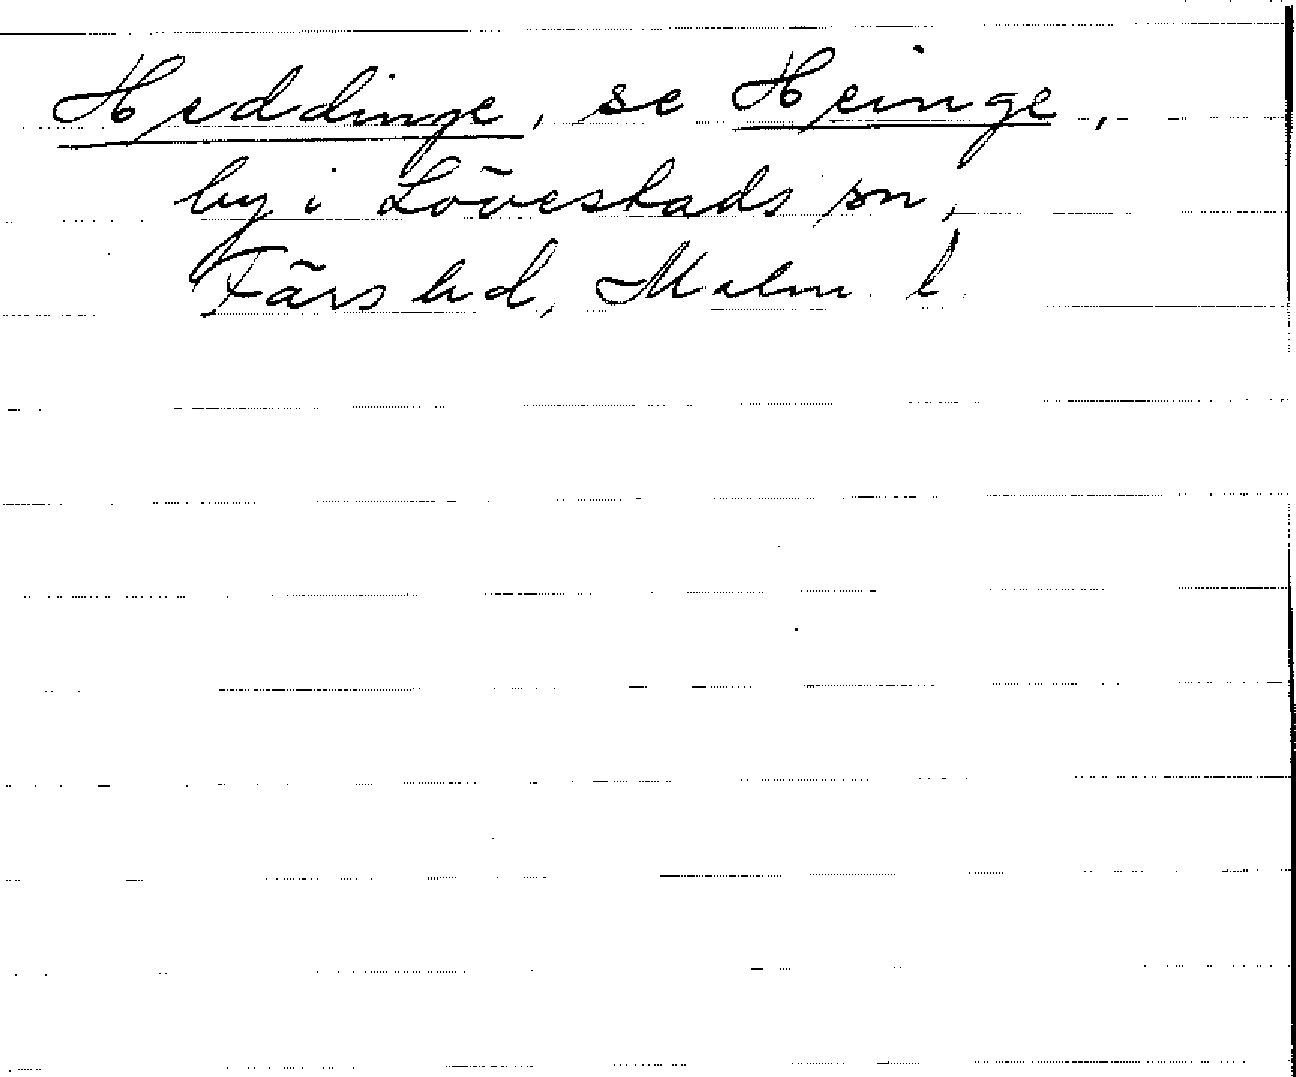 Heddinge, se Heinge,
by i Lövestads sn,
Färs hd, Malm. l.